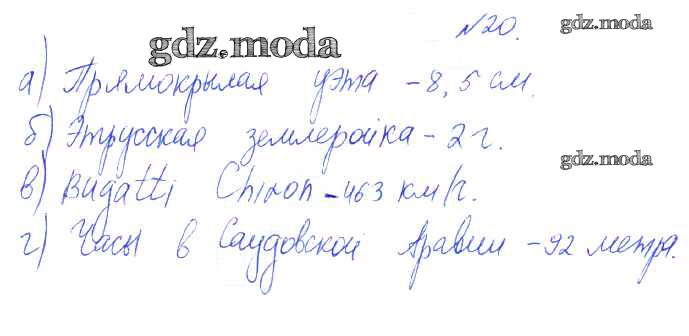 №20.
gdz.moda
gdz.moda
а) Прямокрылая уэта - 8,5 см.
б) Этрусская землеройка - 2 г.
gdz.moda
в) Bugatti Chiron - 463 км/г.
г) Часы в Саудовской Аравии - 92 метра.